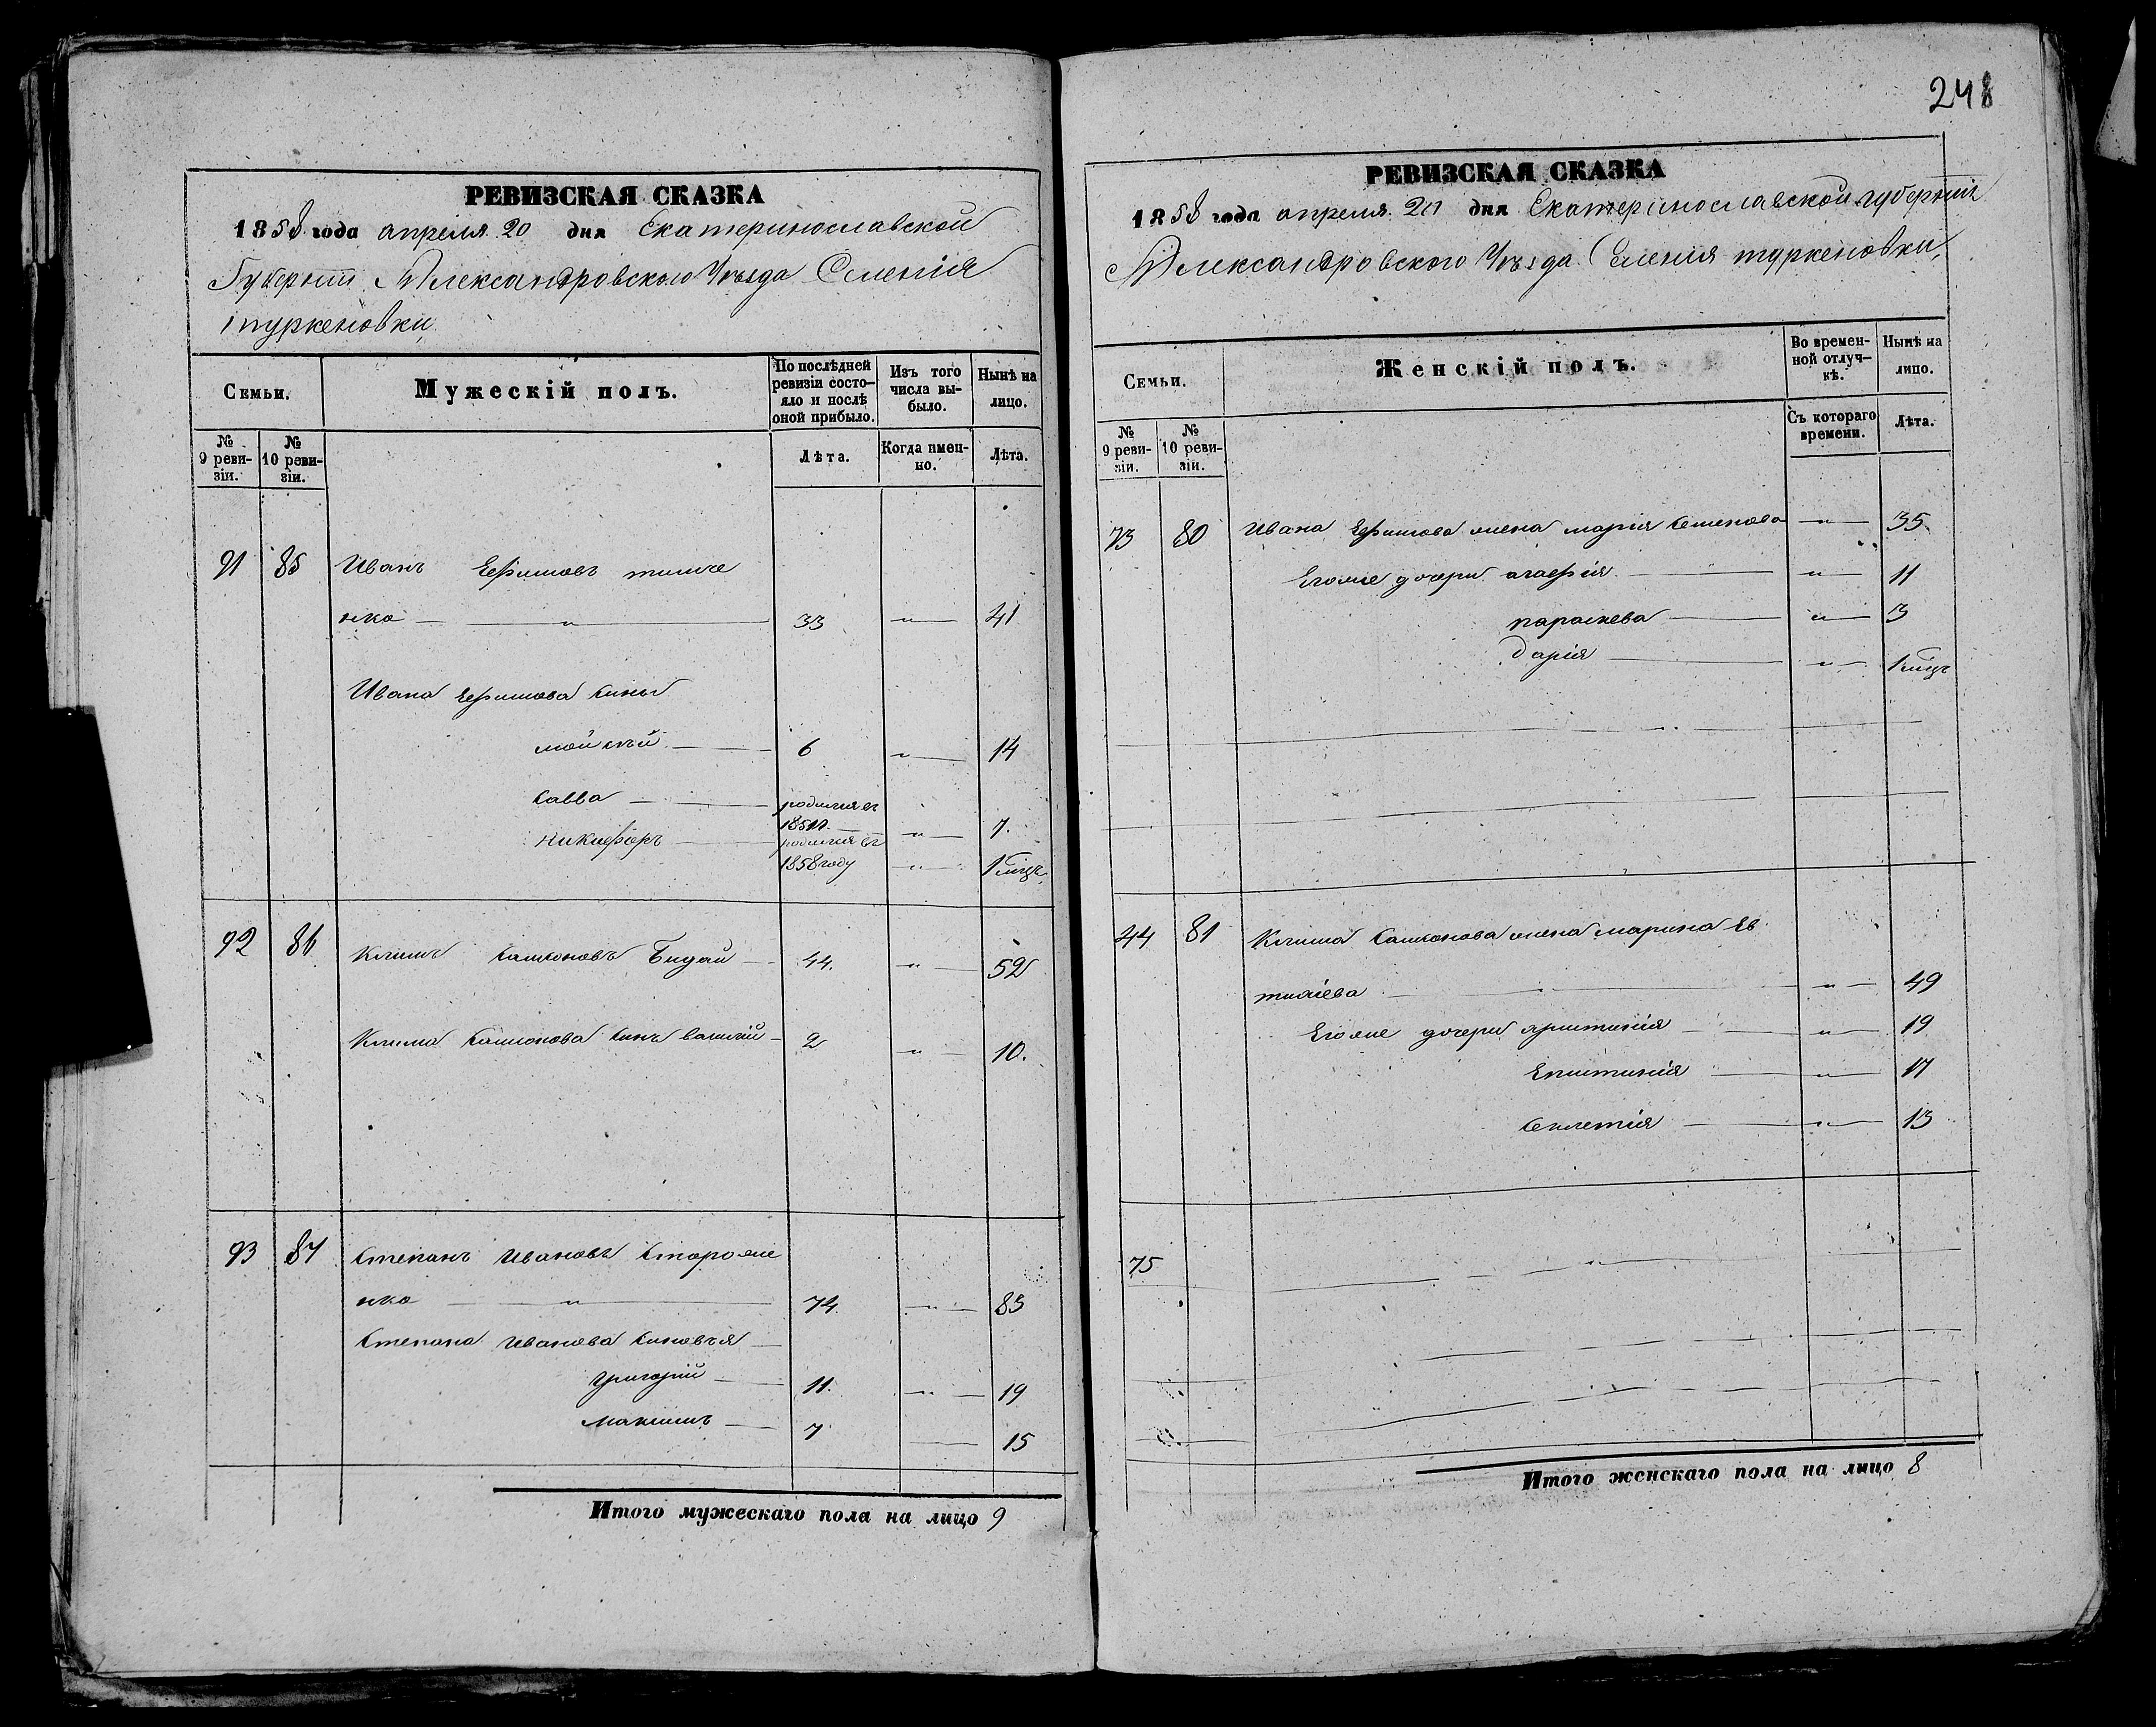 248
РЕВИЗСКАЯ СКАЗКА
1858 года апреля 20 дня Екатеринославской
Губернии Александровского Уѣзда Селенія
туркеновки
Семьи.
Мужескій полъ.
По послѣдней ревизіи состояло и послѣ оной прибыло.
Изъ того числа выбыло.
Нынѣ на лицо.
№ 9 ревизіи.
№ 10 ревизіи.
Лѣта.
Когда именно.
Лѣта.
91 85 Иванъ Ефимовъ тимче
нко — „ — 33 — „ — 41
Ивана Ефимова сины
мойсѣй — 6 „ — 14
савва — родился въ
1851 — „ — 7.
никифоръ — родился въ
1858 году „ — 1 мѣцъ
92 86 Климъ самсоновъ Бидай — 44. „ — 52
Клима самсонова синъ василий — 2 „ — 10.
93 87 степанъ Ивановъ стороже
нко — „ — 74. — „ — 83
степана Иванова синовъя —
григорий — 11. — „ — 19
максимъ — 7 — 15
Итого мужескаго пола на лицо 9
РЕВИЗСКАЯ СКАЗКА
1858 года апреля 20 дня Екатеринославской губернии
Александровского Уѣзда Селения туркеновки
Семьи.
Женскій полъ.
Во временной отлучкѣ.
Нынѣ на лицо.
№ 9 ревизіи.
№ 10 ревизіи.
Съ котораго времени.
Лѣта.
73 80 Ивана Ефимова жена мария семенова — „ — 35
Егоже дочери агафия — „ — 11
параскева — „ — 3
дария — „ — 1 мѣцъ
44 81 Клима самсонова жена марина Ев
тихіева — „ — 49
Егоже дочери христиния — „ — 19
Епистимія — „ — 17
секлетия — „ — 13
75
Итого женскаго пола на лицо 8